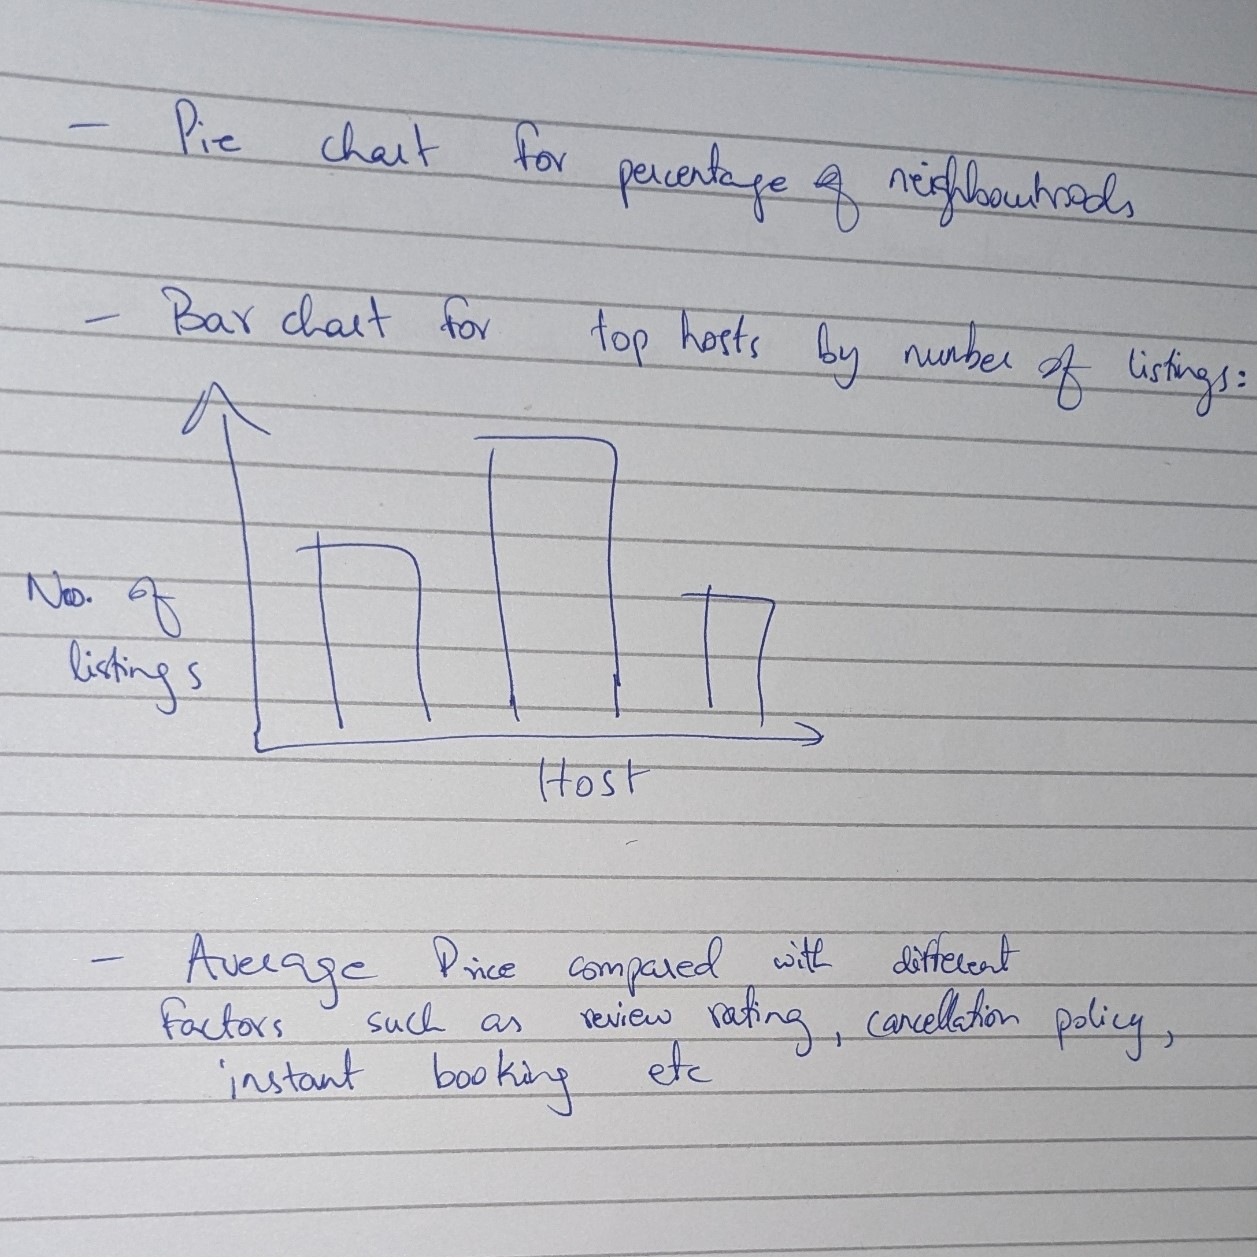 - Pie chart for percentage of neighbourhoods
- Bar chart for top hosts by number of listings:
No. of
listings
Host
- Average Price compared with different
factors such as review rating, cancellation policy,
instant booking etc